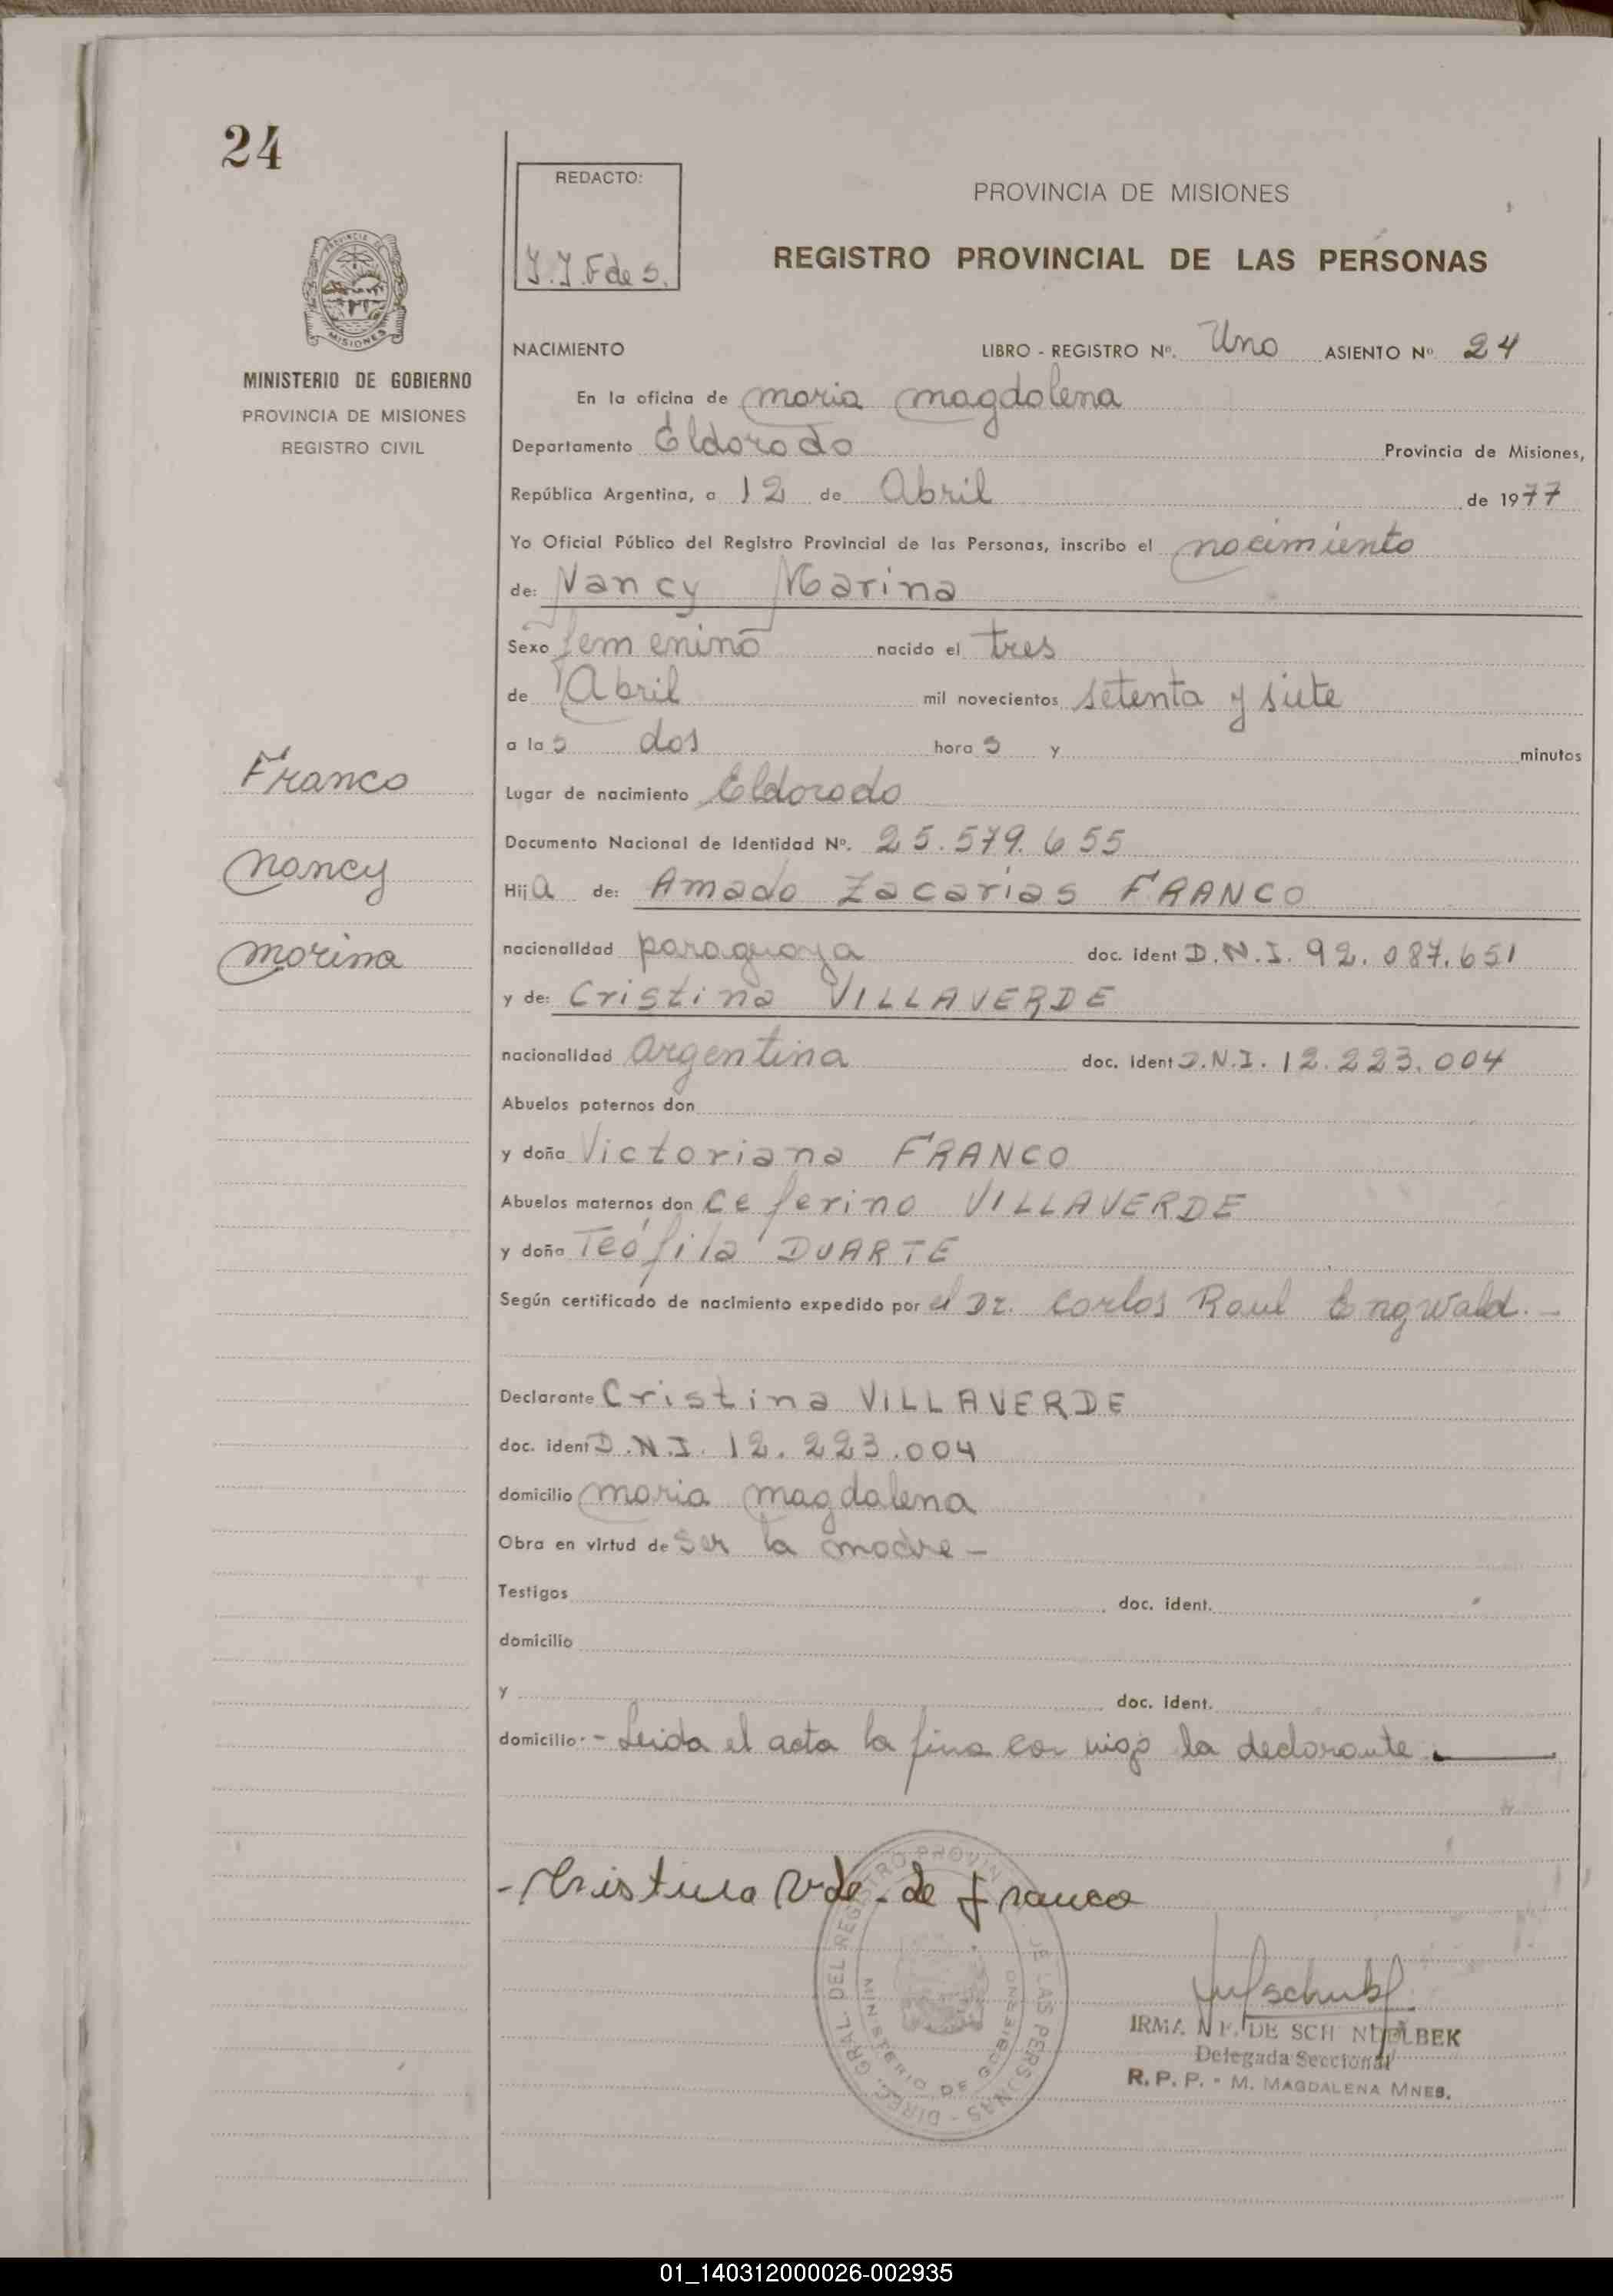 24
REDACTO:
J.J.F de S.
PROVINCIA DE MISIONES
REGISTRO PROVINCIAL DE LAS PERSONAS
PROVINCIA DE
MISIONES
MINISTERIO DE GOBIERNO
PROVINCIA DE MISIONES
REGISTRO CIVIL
NACIMIENTO LIBRO - REGISTRO Nº. Uno ASIENTO Nº 24
En la oficina de Maria Magdalena
Departamento Eldorado Provincia de Misiones,
República Argentina, a 12 de Abril de 1977
Yo Oficial Público del Registro Provincial de las Personas, inscribo el nacimiento
de: Nancy Marina
Sexo femenino nacido el tres
de Abril mil novecientos setenta y siete
a las dos horas y minutos
Franco
Lugar de nacimiento Eldorado
Documento Nacional de Identidad Nº. 25.579.655
Nancy
Hija de: Amado Zacarias FRANCO
Marina
nacionalidad paraguaya doc. ident D.N.I. 92.087.651
y de: Cristina VILLAVERDE
nacionalidad argentina doc. ident D.N.I. 12.223.004
Abuelos paternos don
y doña Victoriana FRANCO
Abuelos maternos don Ceferino VILLAVERDE
y doña Teófila DUARTE
Según certificado de nacimiento expedido por el Dr. Carlos Raul Engwald.-
Declarante Cristina VILLAVERDE
doc. ident D.N.I. 12.223.004
domicilio Maria Magdalena
Obra en virtud de ser la madre -
Testigos doc. ident.
domicilio
y doc. ident.
domicilio.- Leida el acta la firma con migo la declarante.
- Cristina Vde. de Franco
DIREC. GRAL. DEL REGISTRO PROVIN DE LAS PERSONAS
MINISTERIO DE GOBIERNO
IRMA N F. DE SCH NDELBEK
Delegada Seccional
R. P. P. - M. MAGDALENA MNES.
01_140312000026-002935